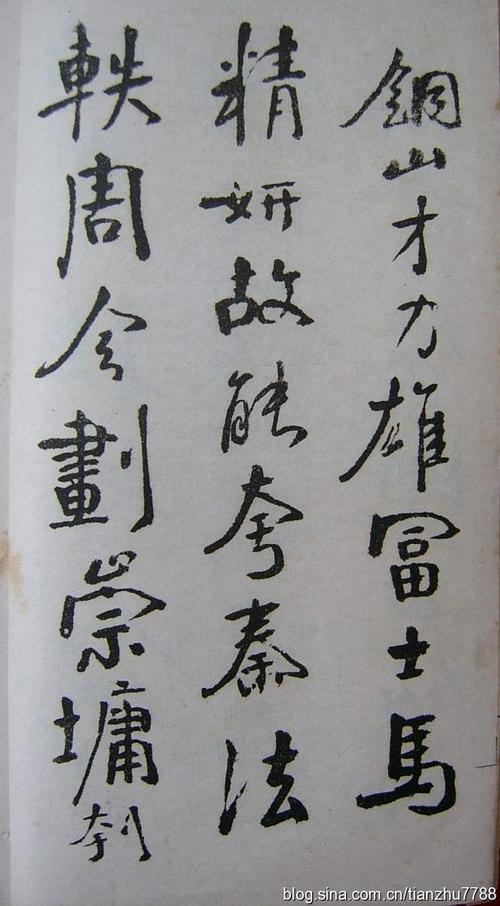 銅山才力雄冨士馬
精妍故能夸秦法
軼周令劃崇墉刳
blog.sina.com.cn/tianzhu7788